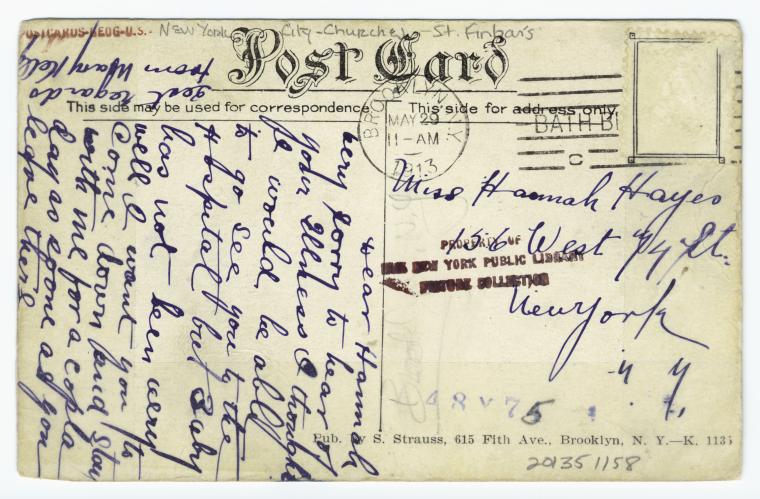 POSTCARDS-GEOG-U.S. - New York City - Churches - St. Finbar's
Post Card
This side may be used for correspondence
This side for address only
BROOKLYN, N.Y.
MAY 29
11-AM
1913
BATH B
C
Miss Hannah Hayes
156 West 74 St.
New York
N Y
PROPERTY OF
THE NEW YORK PUBLIC LIBRARY
PICTURE COLLECTION
48 V 75
Pub. by S. Strauss, 615 Fifth Ave., Brooklyn, N. Y.—K. 1135
201351158
Dear Hannah
very sorry to hear of
your Illness I thought
I would be able
to go see you to the
Hospital but Baby
has not been very
well I want you to
Come down and stay
with me for a copla
Days as soone as you
leave there
Best regards
from Mary Kelly